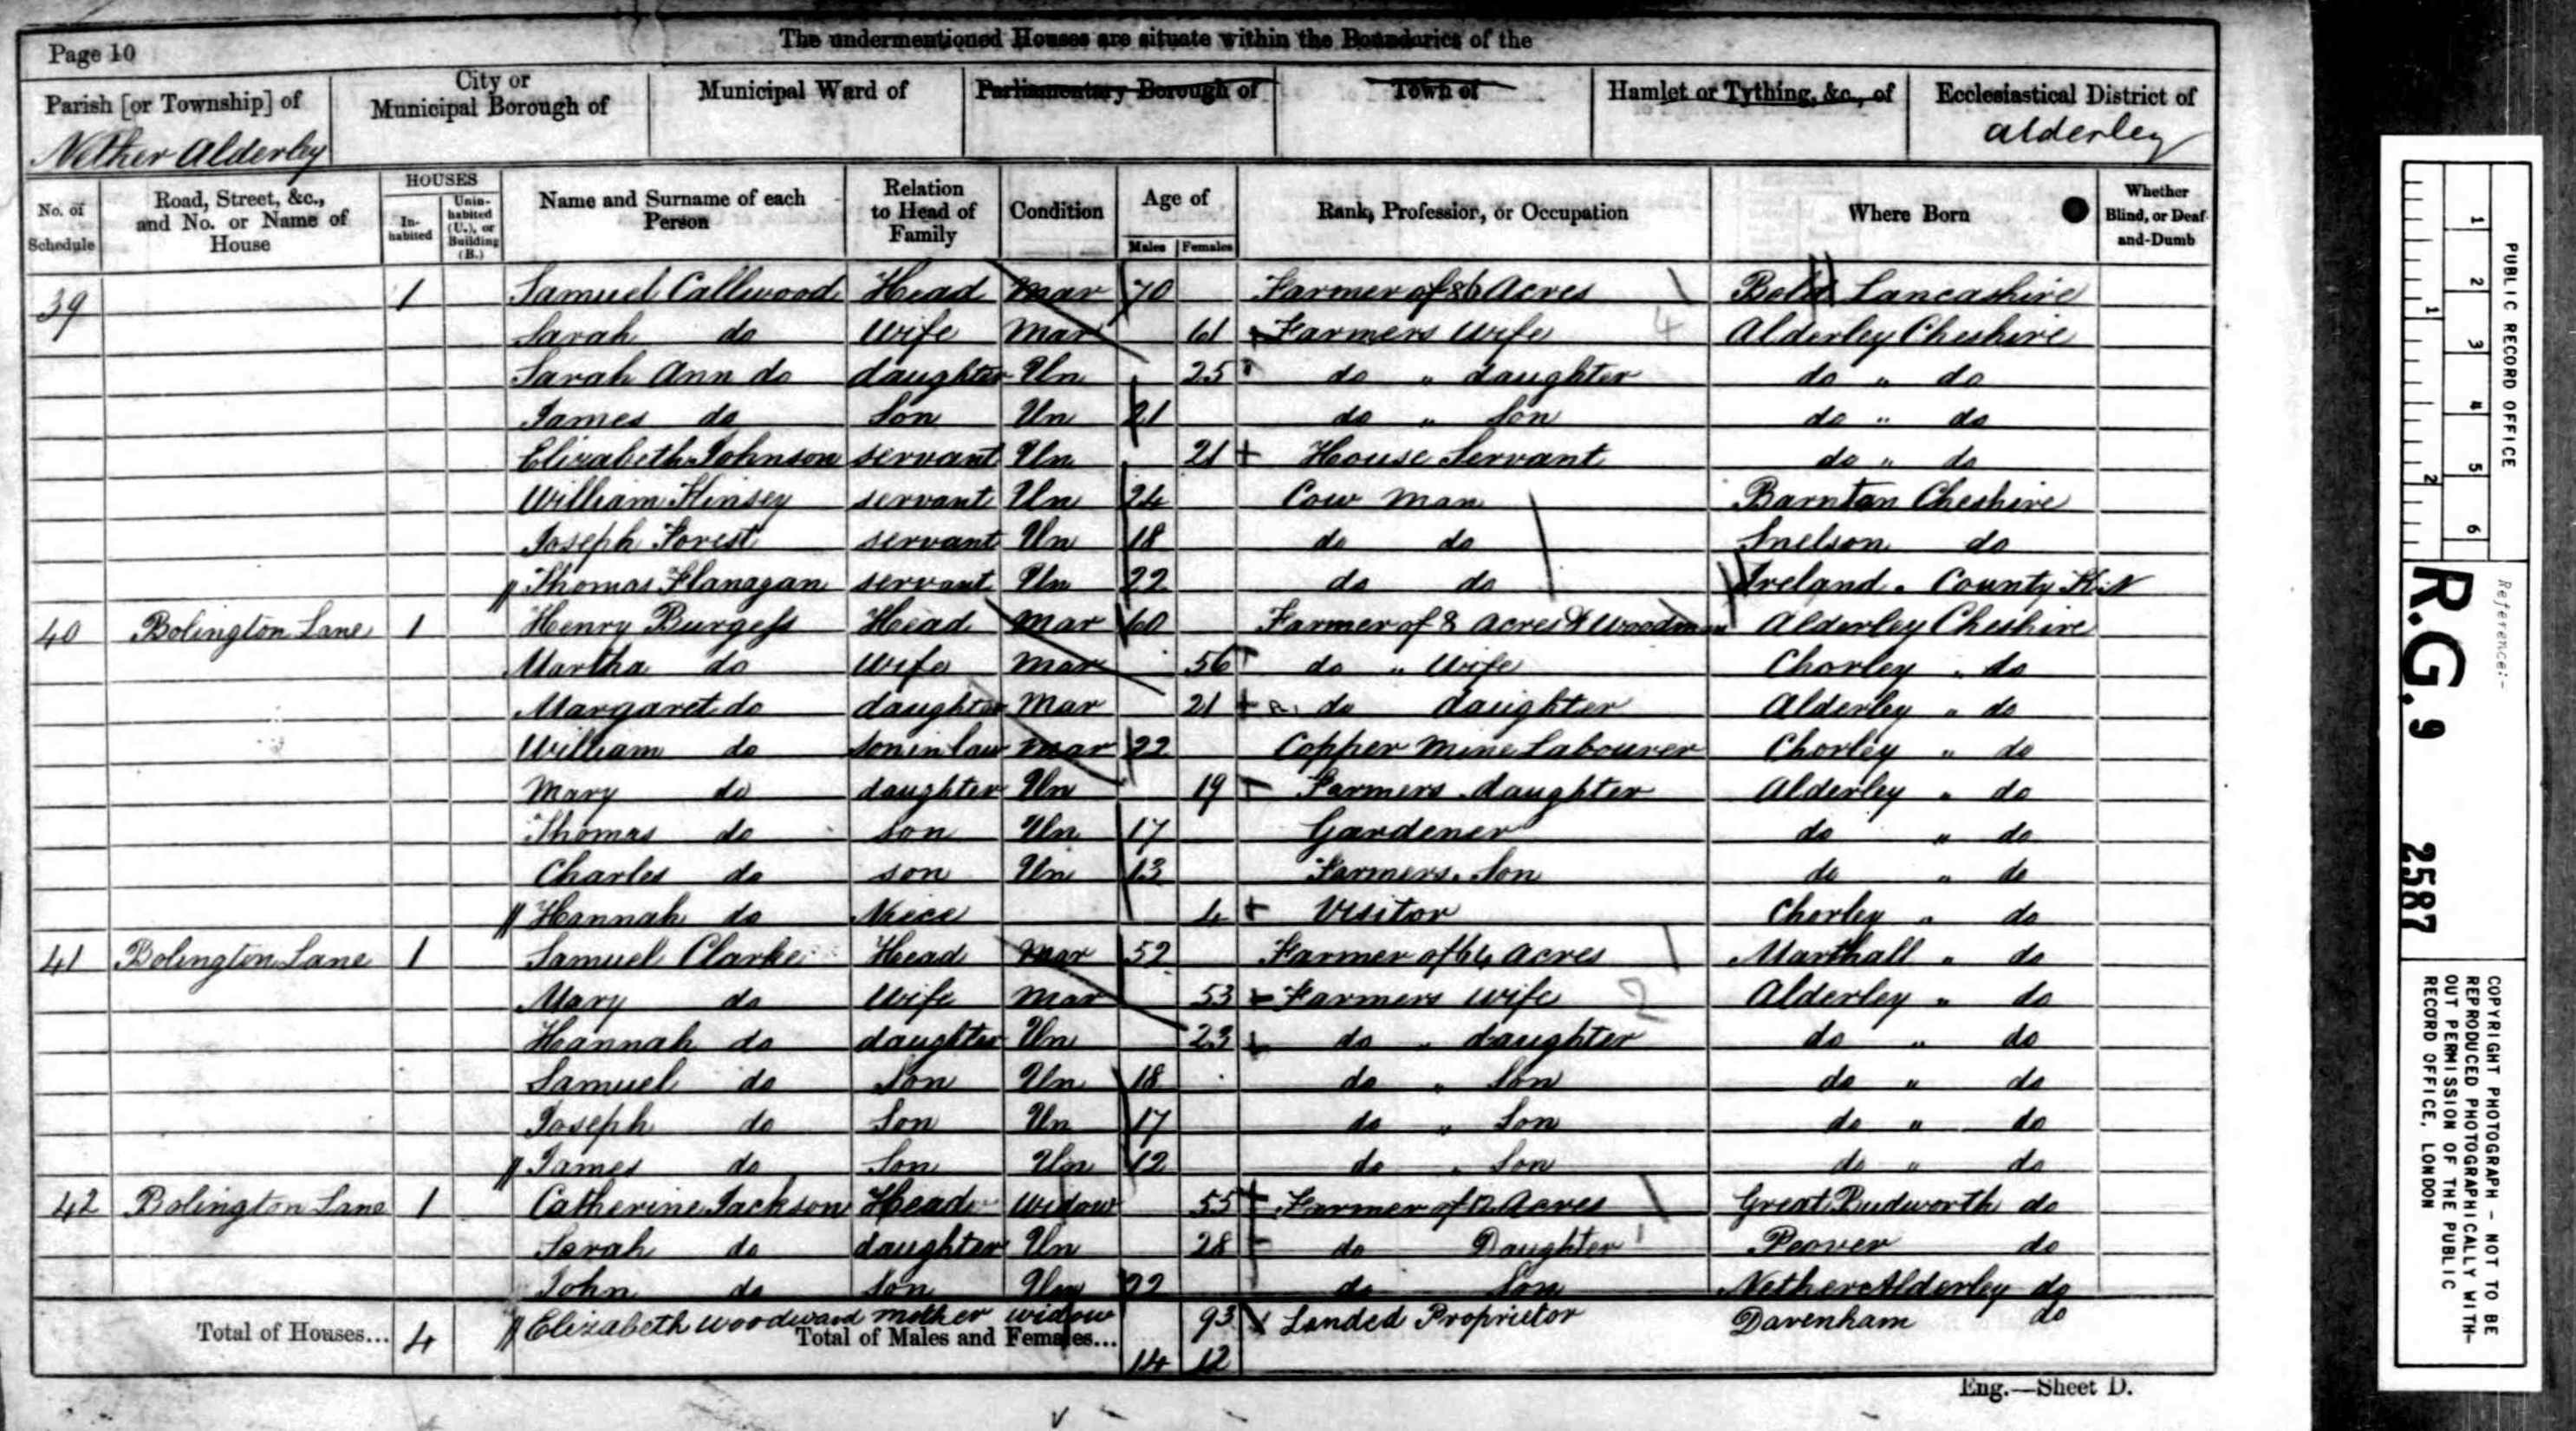 The undermentioned Houses are situate within the Boundaries of the
Page 10
Parish [or Township] of Nether Alderley
City or Municipal Borough of
Municipal Ward of
Parliamentary Borough of
Town of
Hamlet or Tything, &c., of
Ecclesiastical District of Alderley
No. of Schedule
Road, Street, &c., and No. or Name of House
HOUSES
In-habited
Unin-habited (U.), or Building (B.)
Name and Surname of each Person
Relation to Head of Family
Condition
Age of
Males Females
Rank, Profession, or Occupation
Where Born
Whether Blind, or Deaf-and-Dumb
39 1 Samuel Callwood Head Mar 70 Farmer of 86 Acres Bold Lancashire
Sarah do Wife Mar 61 Farmers Wife Alderley Cheshire
Sarah Ann do daughter Un 25 do " daughter do " do
James do Son Un 21 do " Son do " do
Elizabeth Johnson servant Un 21 House Servant do " do
William Kinsey servant Un 24 Cow Man Barntan Cheshire
Joseph Forest servant Un 18 do do Snelson do
Thomas Flanagan servant Un 22 do do Ireland. County
40 Bolington Lane 1 Henry Burgess Head Mar 60 Farmer of 8 Acres & Woodman Alderley Cheshire
Martha do Wife Mar 56 do " Wife Chorley " do
Margaret do daughter Mar 21 do daughter Alderley " do
William do Son in law Mar 22 Copper Mine Labourer Chorley " do
Mary do daughter Un 19 Farmers daughter Alderley " do
Thomas do son Un 17 Gardener do " do
Charles do son Un 13 Farmers Son do " do
Hannah do Niece 4 Visitor Chorley " do
41 Bolington Lane 1 Samuel Clarke Head Mar 52 Farmer of 64 Acres Marthall " do
Mary do Wife Mar 53 Farmers Wife Alderley " do
Hannah do daughter Un 23 do " daughter do " do
Samuel do Son Un 18 do " Son do " do
Joseph do Son Un 17 do " Son do " do
James do Son Un 12 do " Son do " do
42 Bolington Lane 1 Catherine Jackson Head Widow 55 Farmer of 12 Acres Great Budworth do
Sarah do daughter Un 28 do Daughter Peover do
John do son Un 22 do Son Nether Alderley do
Elizabeth Woodward Mother Widow 93 Landed Proprietor Davenham do
Total of Houses... 4 Total of Males and Females... 14 12
Eng.—Sheet D.
PUBLIC RECORD OFFICE
1 2 3 4 5 6
1 2
Reference:-
R.G. 9 2587
COPYRIGHT PHOTOGRAPH – NOT TO BE
REPRODUCED PHOTOGRAPHICALLY WITH-
OUT PERMISSION OF THE PUBLIC
RECORD OFFICE, LONDON